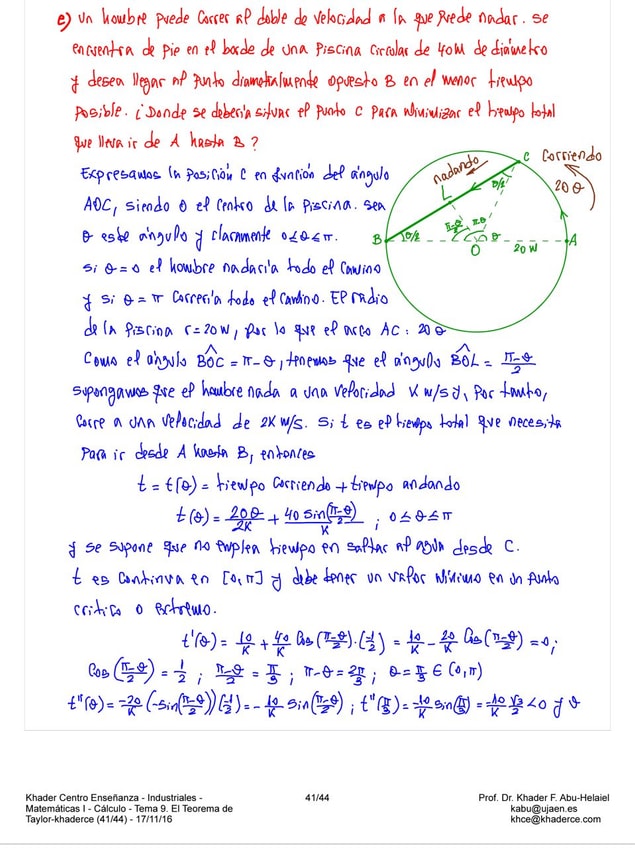 e) Un hombre puede correr al doble de velocidad a la que puede nadar. Se
encuentra de pie en el borde de una piscina circular de 40m de diámetro
y desea llegar al punto diametralmente opuesto B en el menor tiempo
posible. ¿Donde se debería situar el punto C para minimizar el tiempo total
que lleva ir de A hasta B?
Expresamos la posición C en función del ángulo
AOC, siendo O el centro de la piscina. Sea
θ este ángulo y claramente 0≤θ≤π.
Si θ=0 el hombre nadaría todo el camino
y si θ=π correría todo el camino. El radio
de la piscina r=20m, por lo que el arco AC: 20θ
Como el ángulo BÔC = π-θ, tenemos que el ángulo BÔL = (π-θ)/2
supongamos que el hombre nada a una velocidad K m/s y, por tanto,
corre a una velocidad de 2K m/s. Si t es el tiempo total que necesita
para ir desde A hasta B, entonces
t = t(θ) = tiempo corriendo + tiempo andando
t(θ) = 20θ/2K + 40 sin((π-θ)/2)/K ; 0≤θ≤π
y se supone que no emplea tiempo en saltar al agua desde C.
t es continua en [0,π] y debe tener un valor mínimo en un punto
crítico o extremo.
t'(θ) = 10/K + 40/K Cos((π-θ)/2)·(-1/2) = 10/K - 20/K Cos((π-θ)/2) = 0;
Cos((π-θ)/2) = 1/2 ; (π-θ)/2 = π/3 ; π-θ = 2π/3 ; θ = π/3 ∈ (0,π)
t''(θ) = -20/K (-sin((π-θ)/2))(-1/2) = -10/K sin((π-θ)/2) ; t''(π/3) = -10/K sin(π/3) = -10/K √3/2 <0 y θ
nadando
C
corriendo
20θ
L
θ/2
π-θ/2
θ
B
θ/2
O
20m
A
Khader Centro Enseñanza - Industriales -
Matemáticas I - Cálculo - Tema 9. El Teorema de
Taylor-khaderce (41/44) - 17/11/16
41/44
Prof. Dr. Khader F. Abu-Helaiel
kabu@ujaen.es
khce@khaderce.com